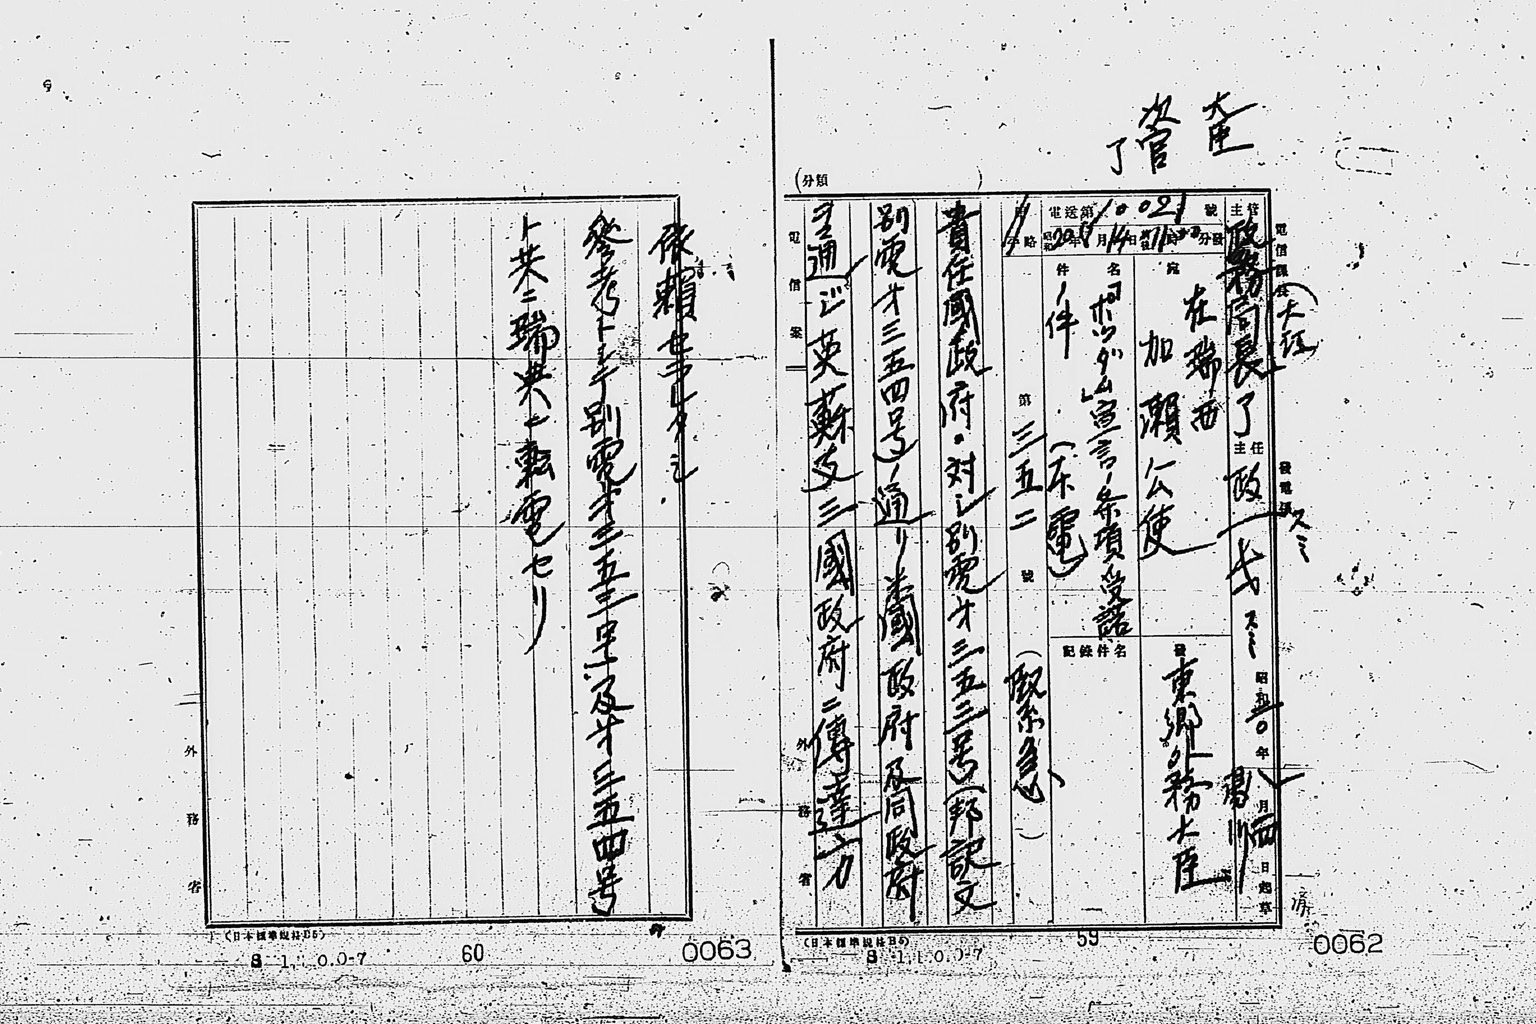 大臣
次官
了
(分類 )
電信課長
(大江)
發電係
スミ
主管
政務局長
了
主任
政一
スミ
昭和二〇年八月一四日起草
電送第 10021 號
昭和20年8月14日 時 分發
宛
在瑞西
加瀬公使
發
東郷外務大臣
名
件
「ポツダム」宣言ノ条項受諾
ノ件
(本電)
記錄件名
第三五二號
(緊急)
貴任國政府ニ対シ別電才三五三号(邦訳文
別電才三五四号)ノ通リ米國政府及同政府
ヲ通ジ英蘇支三國政府ニ傳達方
電信案
外務省
(日本標準規格B5)
S 1.1.0.0-7
59
0062
依賴セラレタシ
参考トシテ別電才三五三号及才三五四号
ト共ニ瑞典ニ転電セリ
外務省
(日本標準規格B5)
S 1.1.0.0-7
60
0063